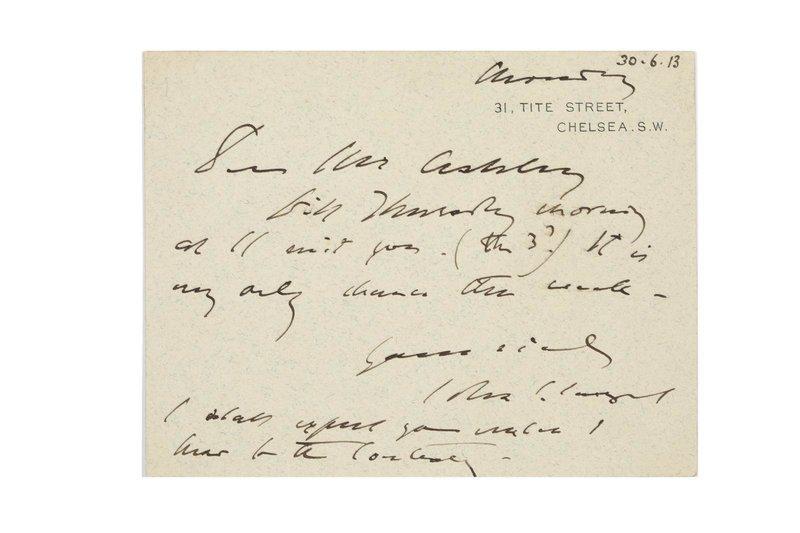 30.6.13
Monday
31, TITE STREET,
CHELSEA. S.W.
Dear Mr Ashley
Will Thursday morning
at 11 suit you. (the 3d) It is
my only chance this week -
Yours sincly
John S. Sargent
I shall expect you unless I
hear to the contrary -